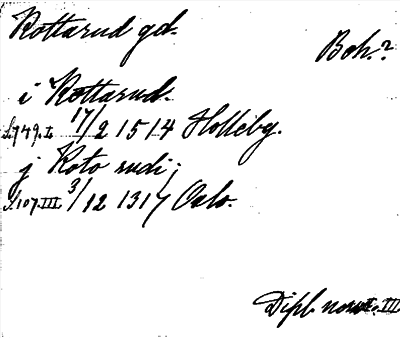 Kottarud gd.
Boh.?
i Kottarud.
S.749.I. 17/2 1514 Holleby.
j Koto rudi;
S.107.III. 3/12 1317 Oslo.
Dipl. norv. I. III